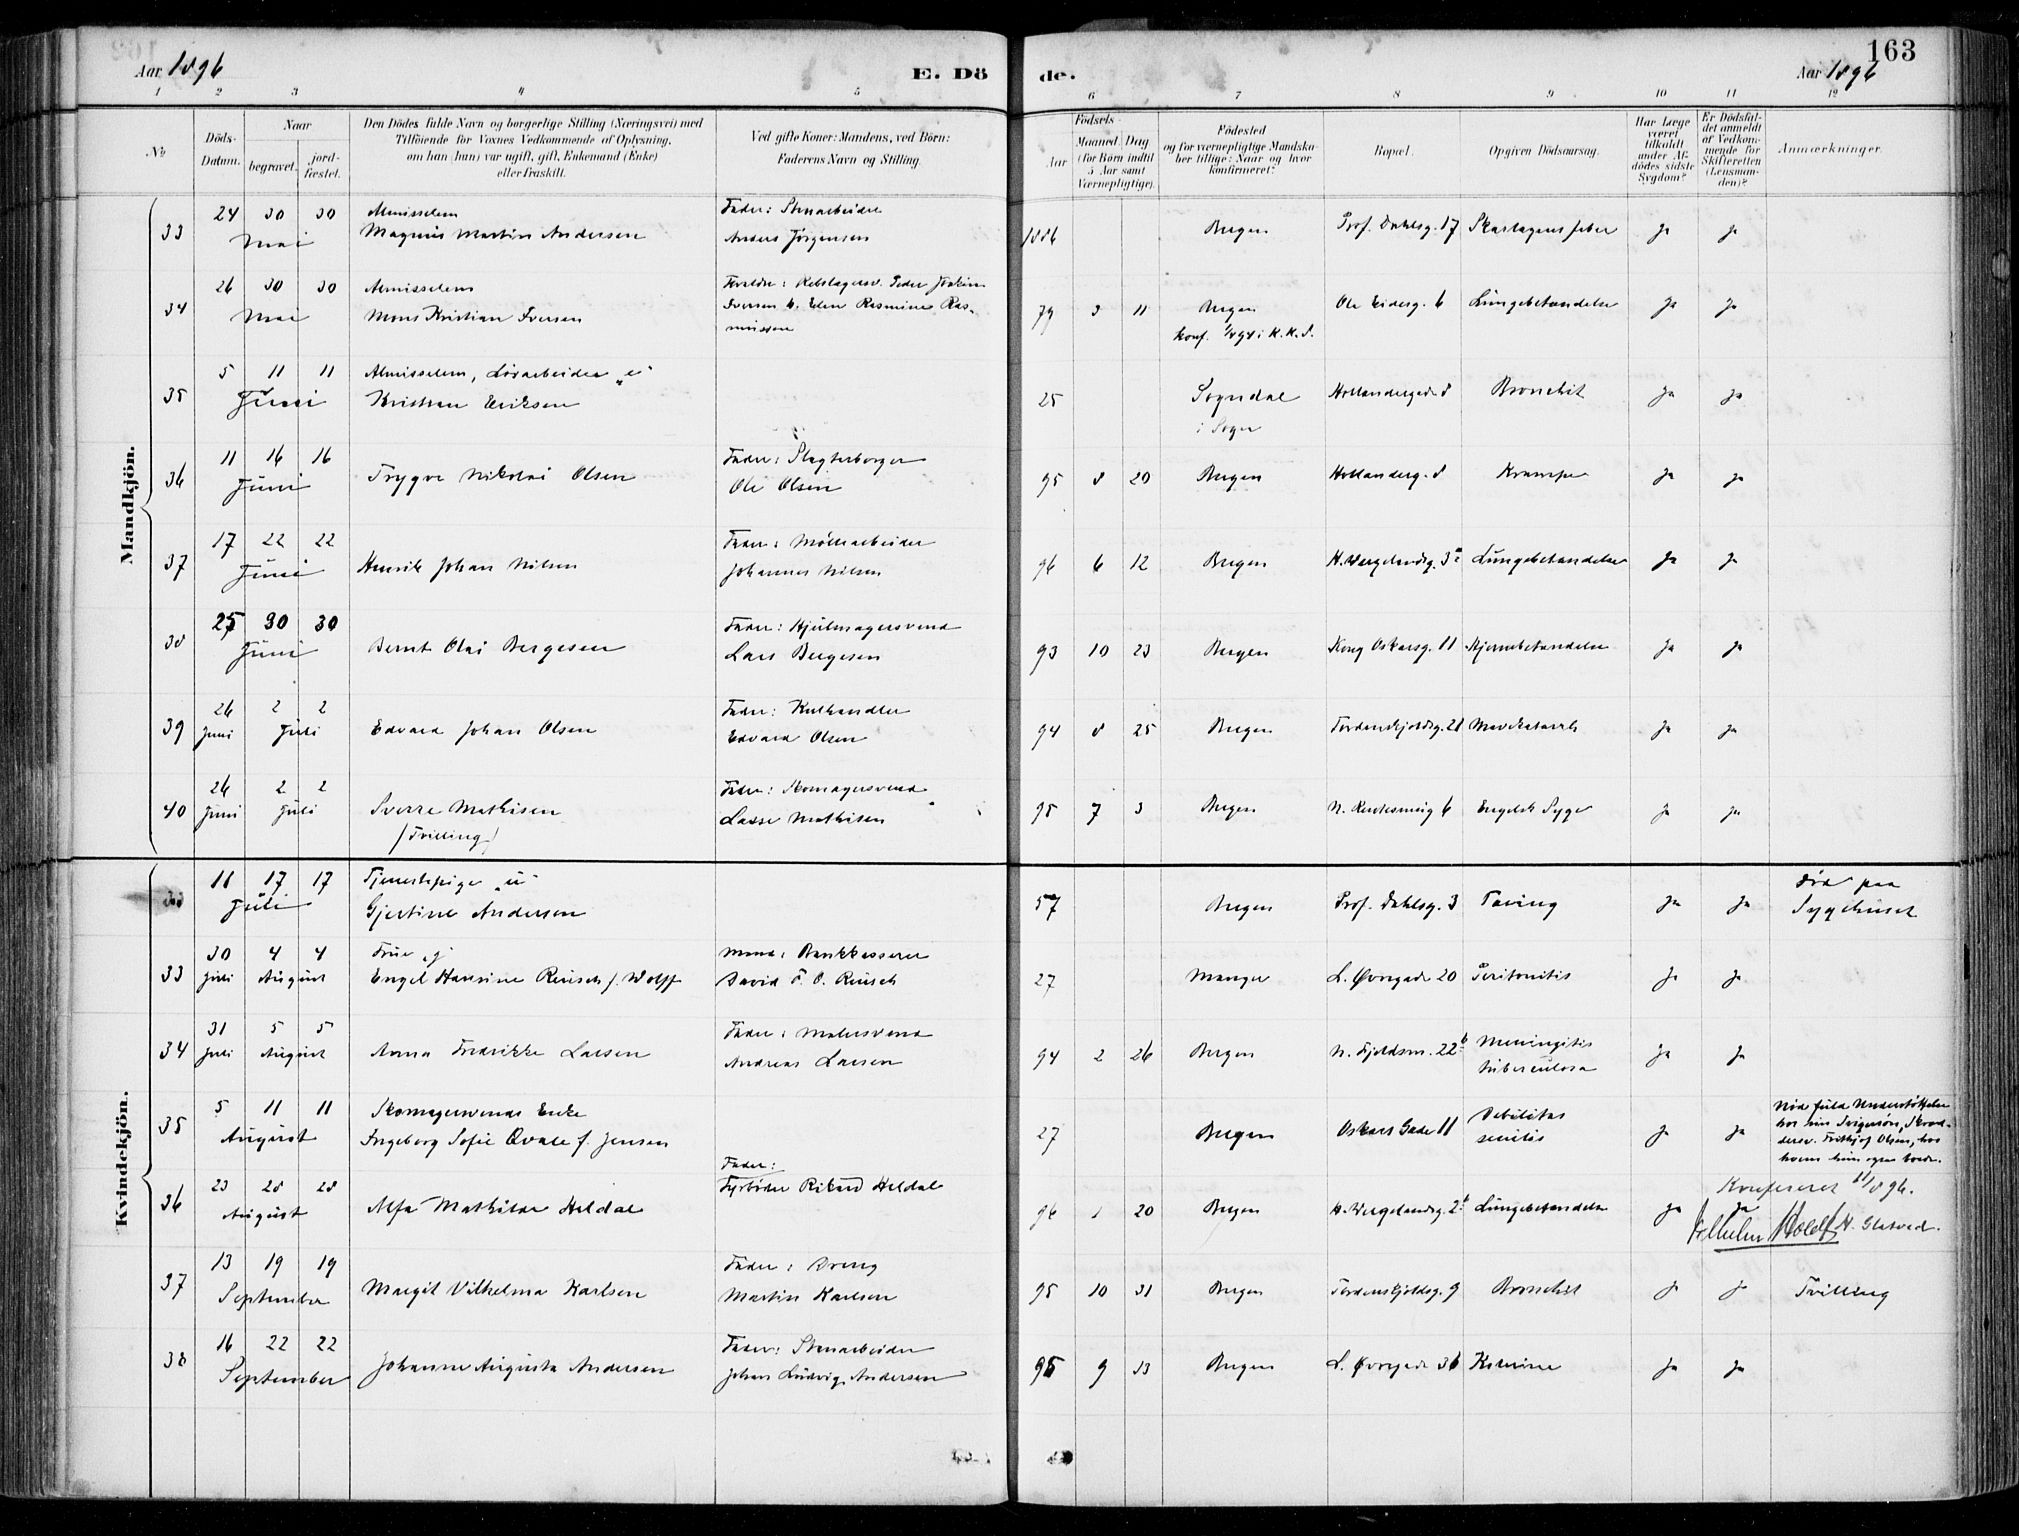 163
Aar 1896
E. Dö
de.
Aar 1896
1 2 3 4 5 6 7 8 9 10 11 12
No
Döds-Datum.
Naar
begravet.
jord-fæstet.
Den Dödes fulde Navn og borgerlige Stilling (Næringsvei) med
Tilföiende for Voxnes Vedkommende af Oplysning,
om han (hun) var ugift, gift, Enkemand (Enke)
eller fraskilt.
Ved gifte Koner: Mandens, ved Börn:
Faderens Navn og Stilling.
Födsels-
Aar
Maaned
Dag
(for Börn indtil
5 Aar samt
Værnepligtige).
Födested
og for værnepligtige Mandska-
ber tillige: Naar og hvor
konfirmeret?
Bopæl.
Opgiven Dödsaarsag.
Har Læge
været
tilkaldt
under Af-
dödes sidste
Sygdom?
Er Dödsfal-
det anmeldt
af Vedkom-
mende for
Skifteretten
(Lensman-
den)?
Anmærkninger.
Mandkjön.
33 24 30 30 Mai Almisselem
Magnus Martin Andersen
Fader: Stenarbeider
Anders Jörgensen
1886 Bergen Prof. Dahlsg. 17 Skarlagensfeber ja ja
34 26 30 30 Mai Almisselem
Mons Kristian Iversen
Forældre: Rebslagersv. Peder Joakim
Iversen & Elen Rasmine Ras-
mussen
79 3 11 Bergen
konf. 1/4 94 i K. K. S.
Ole Eidesg. 6 Lungebetændelse ja ja
35 5 11 11 Juni Almisselem, Löiarbeider "u"
Kristian Eriksen
25 Sogndal
i Sogn
Hollendergade 8 Bronchit ja ja
36 11 16 16 Juni Trygve Nikolai Olsen
Fader: Slagterborger
Ole Olsen
95 8 20 Bergen Hollenderg. 8 Krampe ja ja
37 17 22 22 Juni Henrik Johan Nilsen
Fader: Möllearbeider
Johannes Nilsen
96 6 12 Bergen H. Wergelandsg. 3a Lungebetændelse ja ja
38 25 30 30 Juni Bernt Olai Bergesen
Fader: Hjulmagersvend
Lars Bergesen
93 10 23 Bergen Kong Oskarsg. 11 Hjernebetændelse ja ja
39 26 Juni 2 2 Juli Edvard Johan Olsen
Fader: Kulhandler
Edvard Olsen
94 8 25 Bergen Tordenskjoldsg. 21 Mavekatarrh ja ja
40 26 Juni 2 2 Juli Sverre Mathisen
(Tvilling)
Fader: Skomagersvend
Lasse Mathisen
95 7 3 Bergen N. Korskirkesmug 6 Engelsk Syge ja ja
Kvindekjön.
11 17 17 Juli Tjenestepige "u"
Gjertine Andersen
57 Bergen Prof. Dahlsg. 3 Tæring ja ja Död paa
Sygehuset
33 30 Juli 4 4 August Frue g
Engel Hansine Reusch f. Wolff
Mand: Bankkasserer
David F. O. Reusch
27 Manger L. Øvregade 20 Peritonitis ja ja
34 31 Juli 5 5 August Anna Fredrikke Larsen
Fader: Malersvend
Andreas Larsen
94 2 26 Bergen N. Fjeldsm. 22b Meningitis
tuberculosa ja ja
35 5 11 11 August Skomagersvends Enke
Ingeborg Sofie Qvale f. Jensen
27 Bergen Oskars Gade 11 Debilitas
senilis ja ja
Nöd fuld Understöttelse
hos sin Svigersön, Skræd-
dersv. Fritjof Olsen, hos
hvem hun ogsaa boede.
36 23 28 28 August Alfa Mathilde Heldal
Fader:
Fyrböder Rikard Heldal
96 1 20 Bergen H. Wergelandsg. 2b Lungebetændelse ja ja
Konfereret 11/8 96.
Vilhelm Holdt H. Gletved.
37 13 19 19 September Margit Vilhelma Karlsen
Fader: Dreng
Martin Karlsen
95 10 31 Bergen Tordenskjoldsg. 9 Bronchit ja ja Tvilling
38 16 22 22 September Johanne Augusta Andersen
Fader: Stenarbeider
Johan Ludvig Andersen
95 9 23 Bergen L. Øvregade 36 Kolerine ja ja